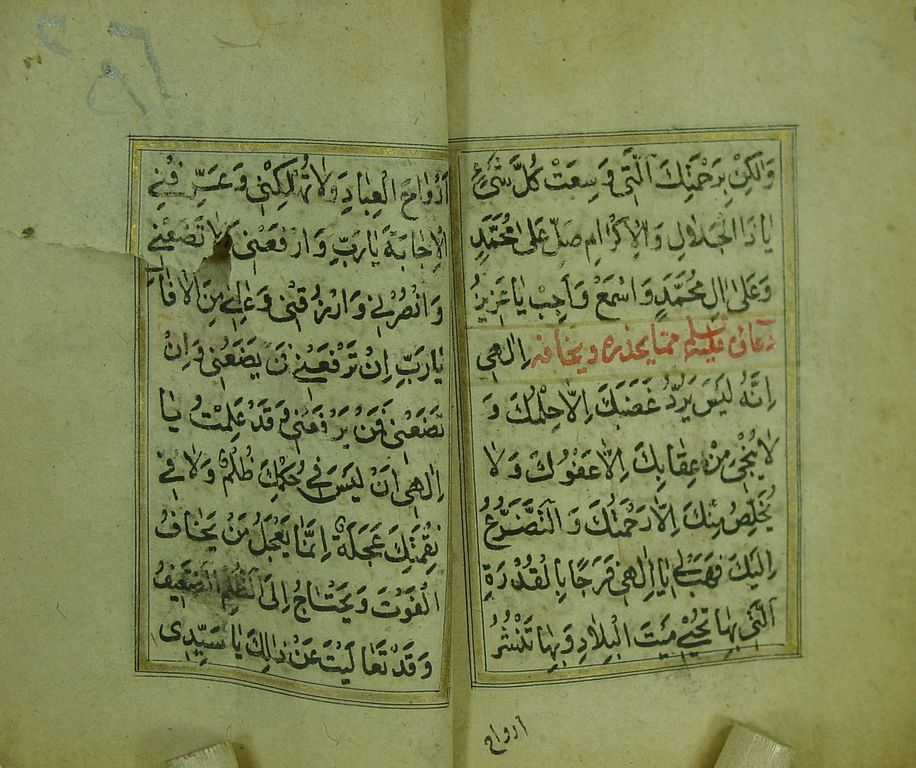 وَلٰكِنْ بِرَحْمَتِكَ الَّتِي وَسِعَتْ كُلَّ شَيْءٍ
يَا ذَا الْجَلَالِ وَالْاِكْرَامِ صَلِّ عَلَى مُحَمَّدٍ
وَعَلَى اٰلِ مُحَمَّدٍ وَاسْمَعْ وَاَجِبْ يَا عَزِيزُ
مما يحذره ويخافه اِلٰهِي
اِنَّهُ لَيْسَ يَرُدُّ غَضَبَكَ اِلَّا حِلْمُكَ وَ
لَا يُنْجِي مِنْ عِقَابِكَ اِلَّا عَفْوُكَ وَلَا
يُخَلِّصُ مِنْكَ اِلَّا رَحْمَتُكَ وَالتَّضَرُّعُ
اِلَيْكَ فَهَبْ لِي يَا اِلٰهِي فَرَجًا بِالْقُدْرَةِ
الَّتِي بِهَا تُحْيِي مَيْتَ الْبِلَادِ وَبِهَا تَنْشُرُ
ارواح
اَرْوَاحَ الْعِبَادِ وَلَا تُهْلِكْنِي وَعَرِّفْنِي
الْاِجَابَةَ يَا رَبِّ وَارْفَعْنِي وَلَا تَضَعْنِي
وَانْصُرْنِي وَارْزُقْنِي وَعَافِنِي مِنَ الْاٰفَاتِ
يَا رَبِّ اِنْ تَرْفَعْنِي فَمَنْ يَضَعُنِي وَاِنْ
تَضَعْنِي فَمَنْ يَرْفَعُنِي وَقَدْ عَلِمْتُ يَا
اِلٰهِي اَنْ لَيْسَ فِي حُكْمِكَ ظُلْمٌ وَلَا فِي
نِقْمَتِكَ عَجَلَةٌ اِنَّمَا يَعْجَلُ مَنْ يَخَافُ
الْفَوْتَ وَيَحْتَاجُ اِلَى الظُّلْمِ الضَّعِيفُ
وَقَدْ تَعَالَيْتَ عَنْ ذٰلِكَ يَا سَيِّدِي